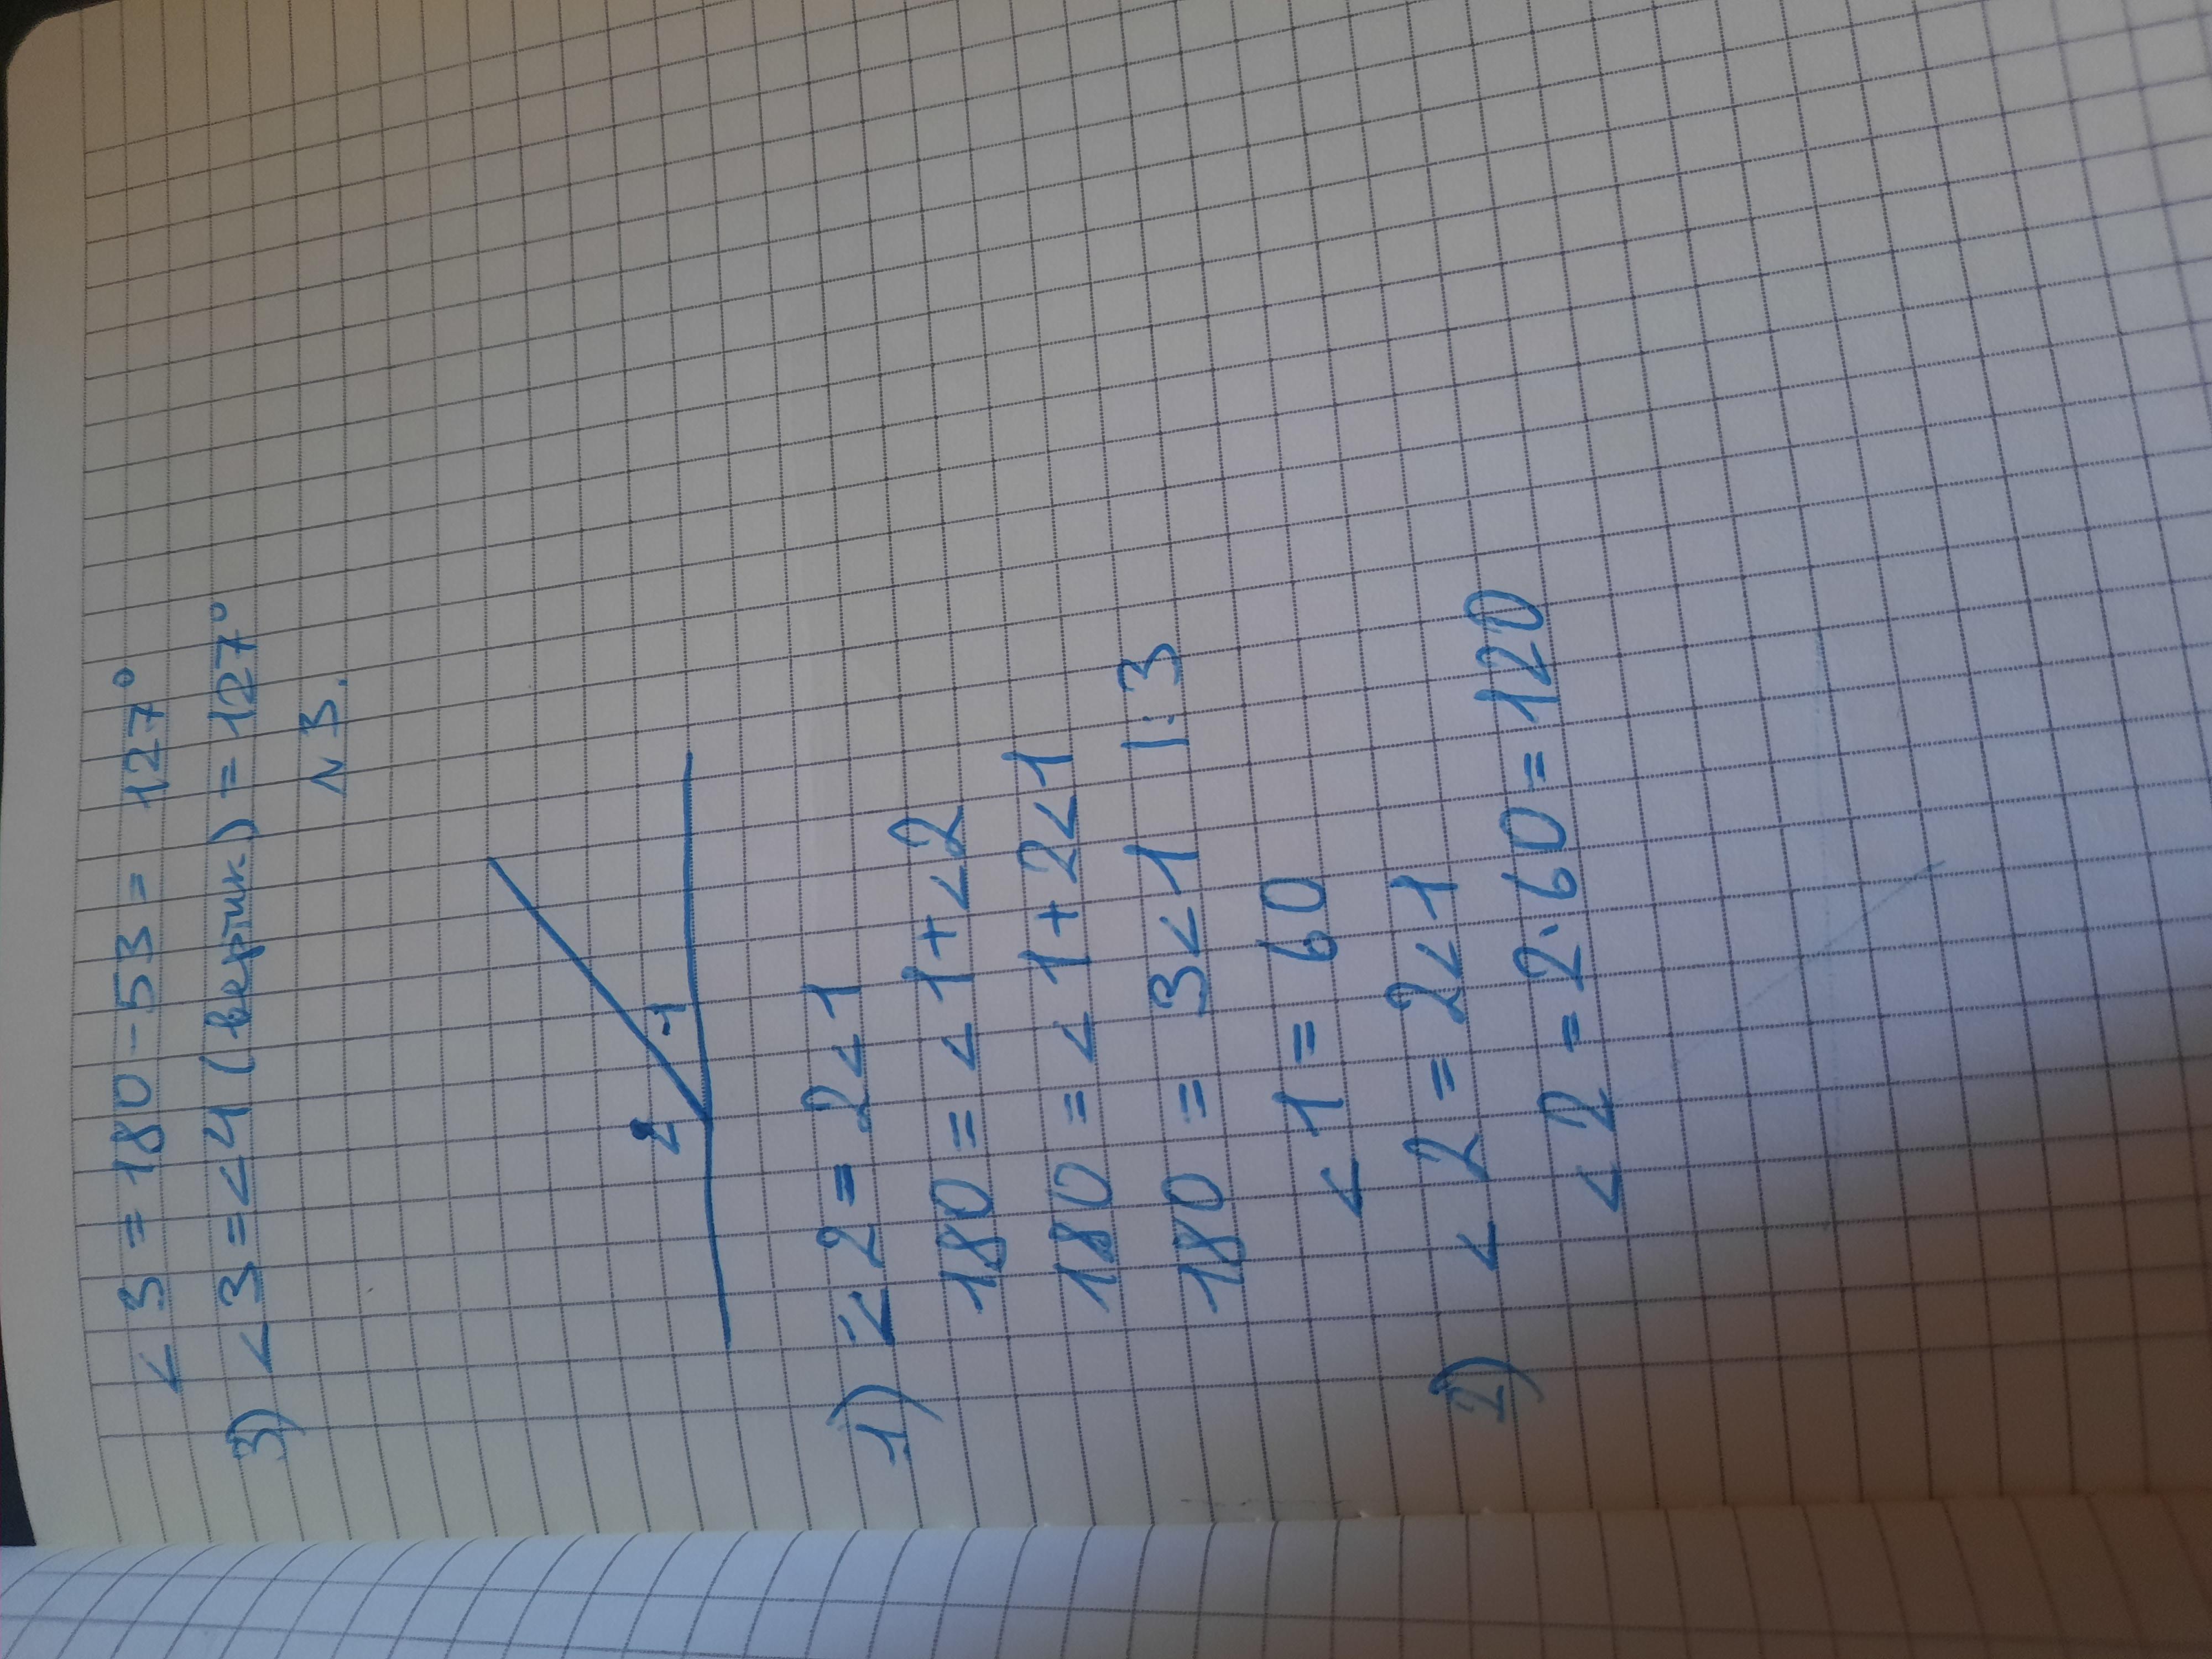 < 3 = 180 - 53 = 127°
3) < 3 = < 4 (вертик) = 127°
N 3.
2 1
1) < 2 = 2 < 1
180 = < 1 + < 2
180 = < 1 + 2 < 1
180 = 3 < 1 | : 3
< 1 = 60
2) < 2 = 2 < 1
< 2 = 2 · 60 = 120